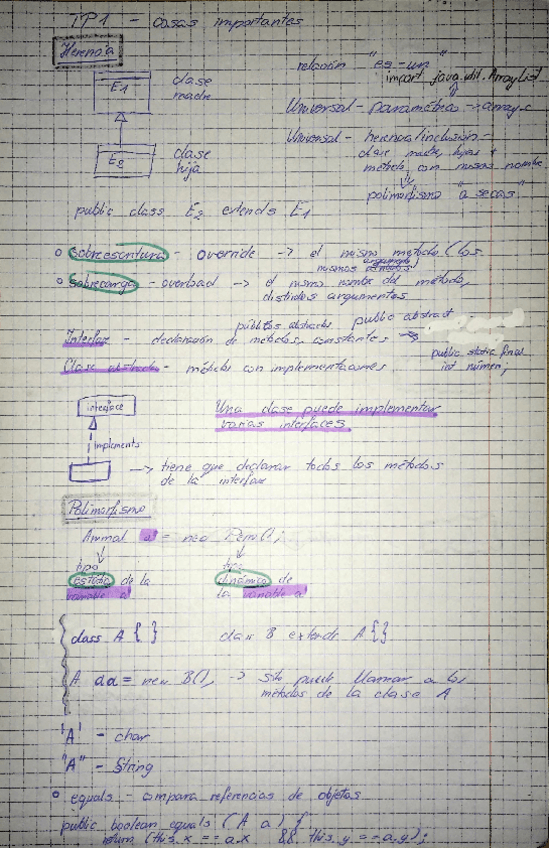 TP1 - cosas importantes
Herencia
relación "es-un"
import java.util.ArrayList
E1
clase
madre
Universal - paramétrico ->
Universal - herencia/inclusión -
clase madre, hijas +
métodos con mismos nombres
polimorfismo "a secas"
E2
clase
hija
public class E2 extends E1
sobreescritura - override -> el mismo método (los
mismos argumentos
sobrecarga - overload -> el mismo nombre del método,
distintos argumentos
públicos abstractos public abstract
Interfaz - declaración de métodos, constantes =>
public static final
int número;
Clase abstracta - métodos con implementaciones
interface
implements
Una clase puede implementar
varias interfaces
-> tiene que declarar todos los métodos
de la interfaz
Polimorfismo
Animal a = new Perro();
tipo
estático de la
variable a
tipo
dinámico de
la variable a
class A { }
class B extends A { }
A aa = new B(); -> sólo puede llamar a los
métodos de la clase A
'A' - char
"A" - String
equals - compara referencias de objetos
public boolean equals (A a) {
return (this.x == a.x && this.y == a.y);